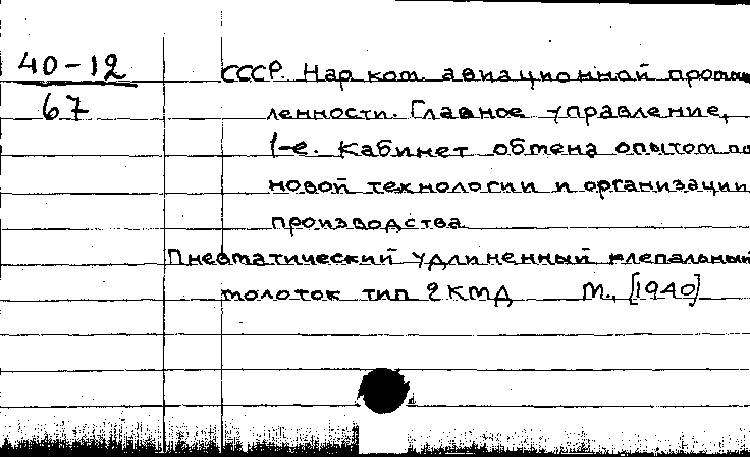 40-12
67
СССР. Нар. ком. авиационной промыш
ленности. Главное управление,
1-е. Кабинет обмена опытом по
новой технологии и организации
производства
Пневматический удлиненный клепальный
молоток тип 2КМД М., [1940]